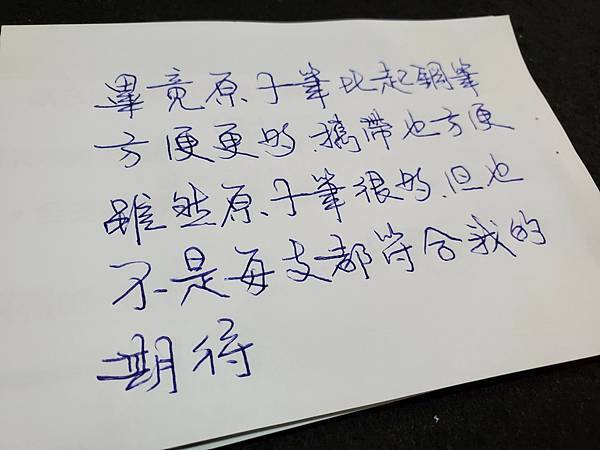 畢竟原子筆比起鋼筆
方便更好.攜帶也方便
雖然原子筆很好.但也
不是每支都符合我的
期待